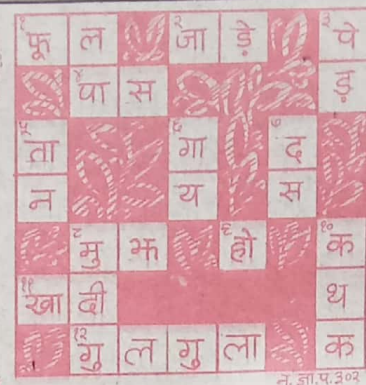 १ फू ल २ जा ड़े ३ पे
४ पा स ड़
५ ता ६ गा ७ द
न य स
८ मु झ ९ हो १० क
११ खा दी थ
१२ गु ल गु ला क
न.ज्ञा.प.३०२